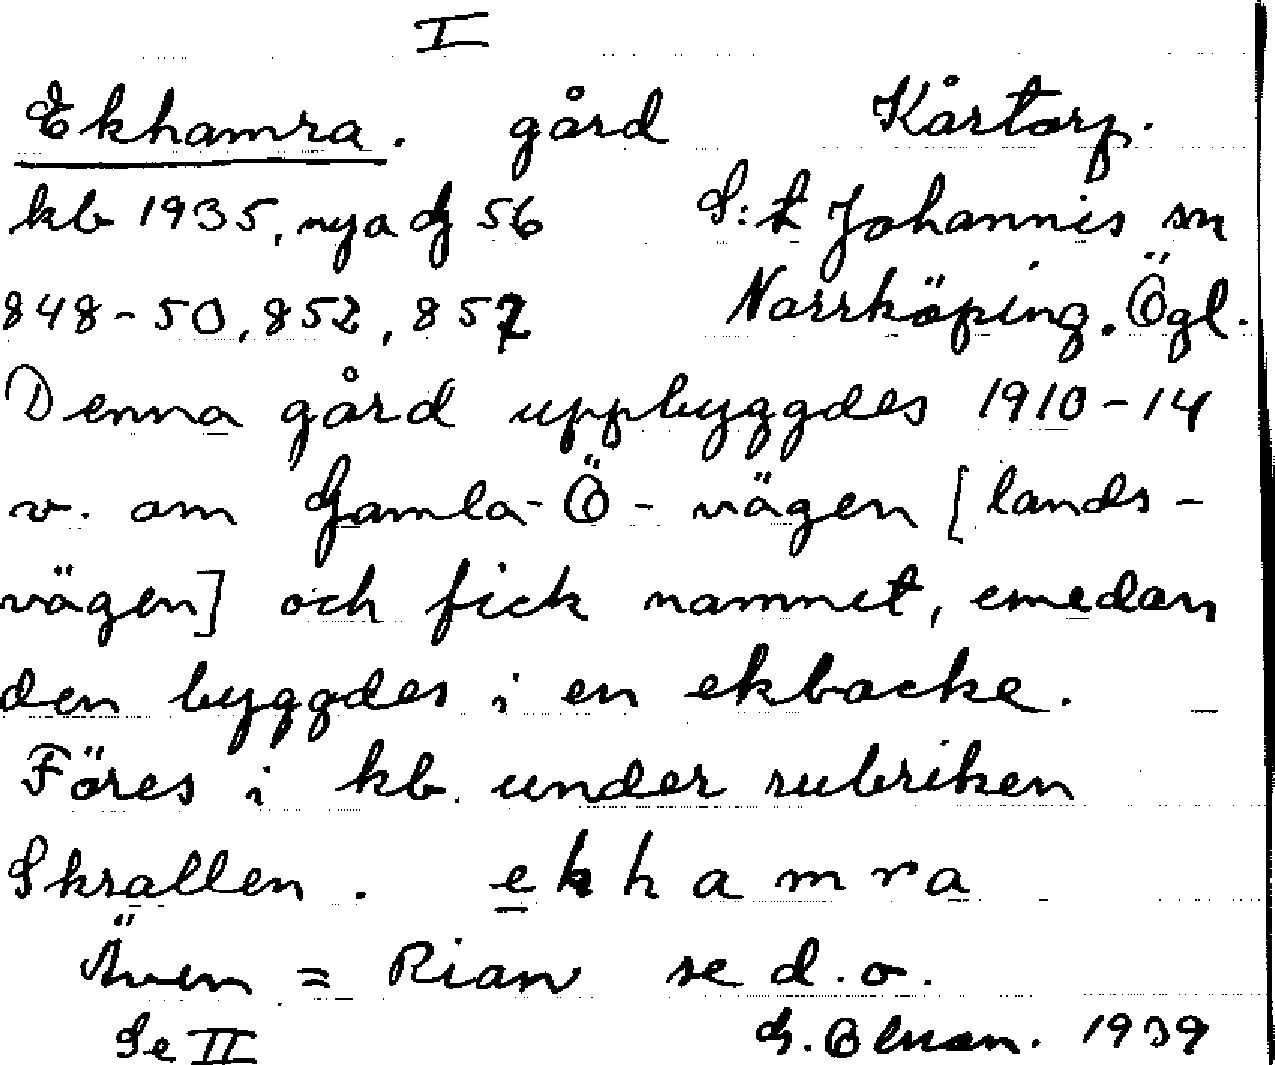 I
Ekhamra. gård Kårtorp.
kb 1935, nya G 56 S:t Johannis sn
848-50, 852, 857 Norrköping. Ögl.
Denna gård uppbyggdes 1910-14
v. om Gamla-Ö-vägen [lands-
vägen] och fick namnet, emedan
den byggdes i en ekbacke.
Föres i kb. under rubriken
Skrallen. ekhamra
Även = Rian se d.o.
Se II G. 1939